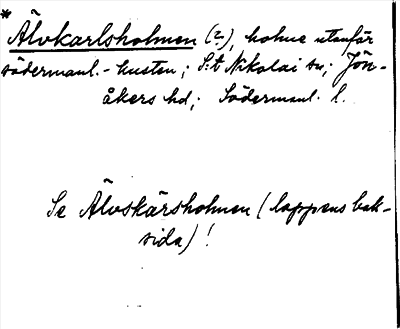 *
Älvkarlsholmen (2.), holme utanför
södermanl.-kusten; S:t Nikolai sn; Jön-
åkers hd; Södermanl. l.
Se Älvskärsholmen (lappens bak-
sida)!